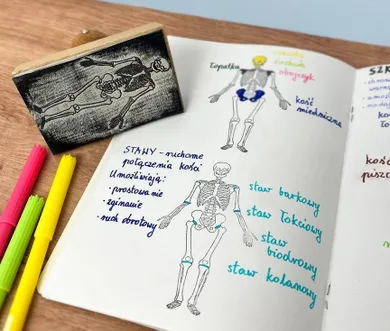 łopatka
obojczyk
kość
miedniczna
STAWY - ruchome
połączenia kości
Umożliwiają:
• prostowanie
• zginanie
• ruch obrotowy
staw barkowy
staw łokciowy
staw
biodrowy
staw kolanowy
SZK
kość